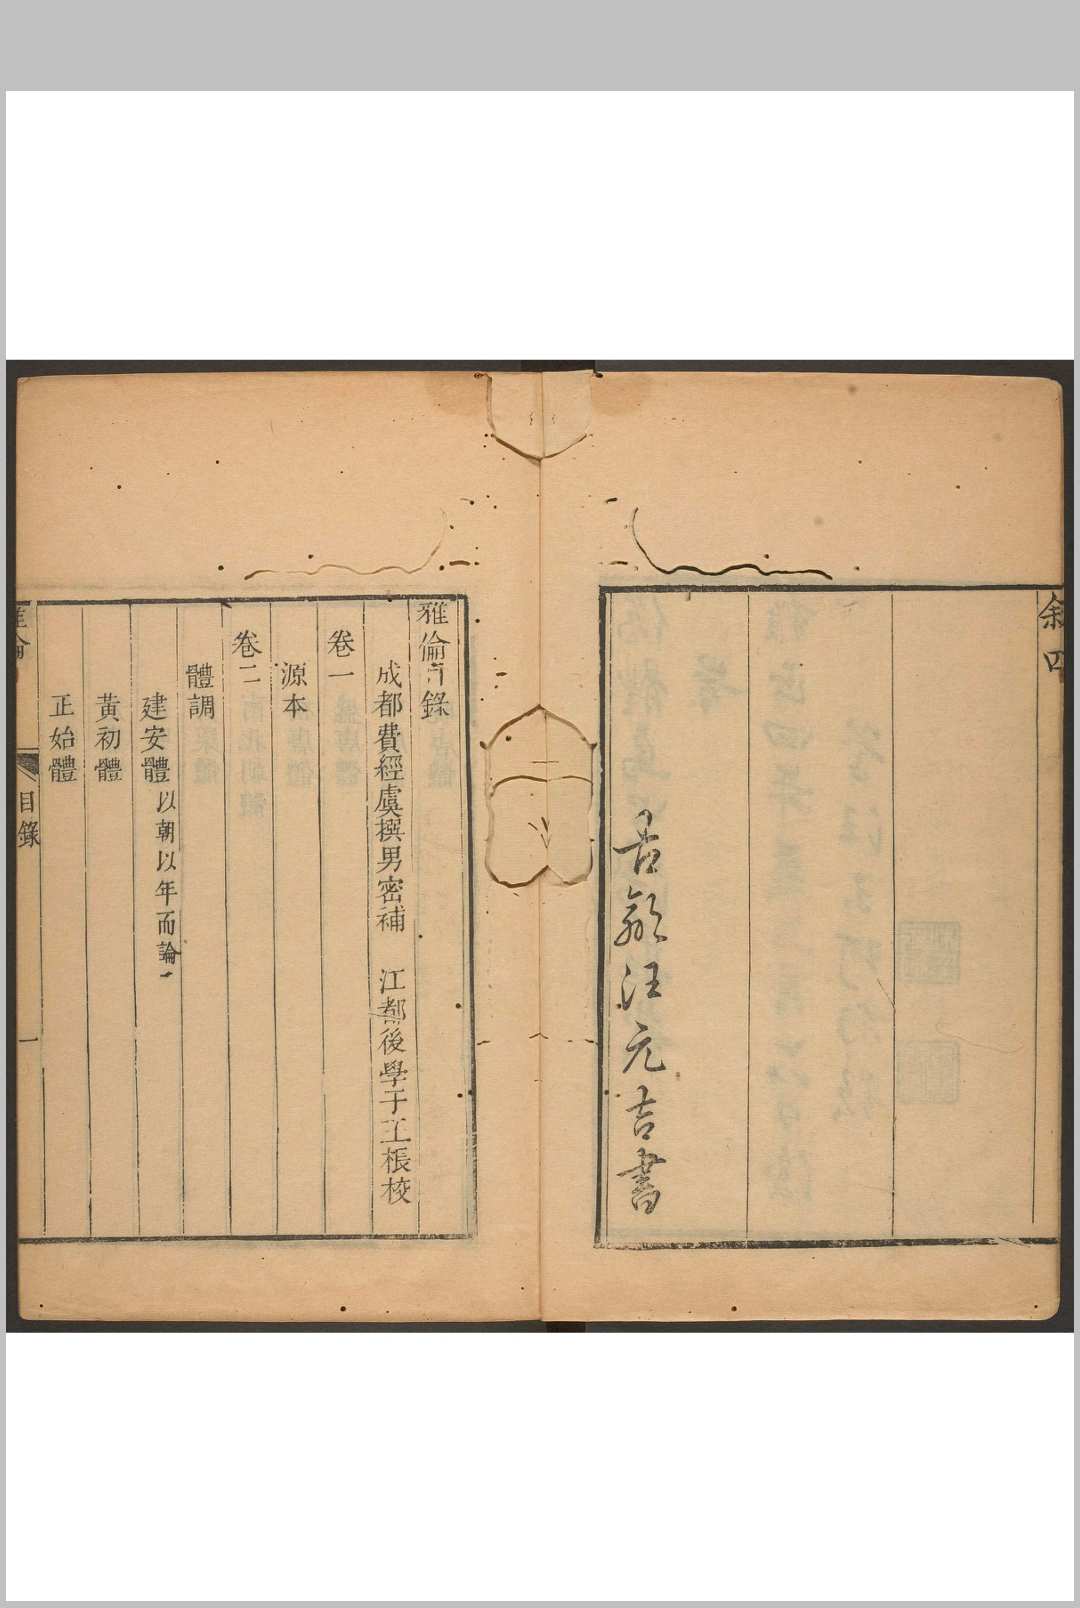 叙四
古歙汪元吉書
雅倫目錄
成都費經虞撰男密補 江都後學于王棖校
卷一
源本
卷二
體調
建安體以朝以年而論
黃初體
正始體
雅倫
目錄
一